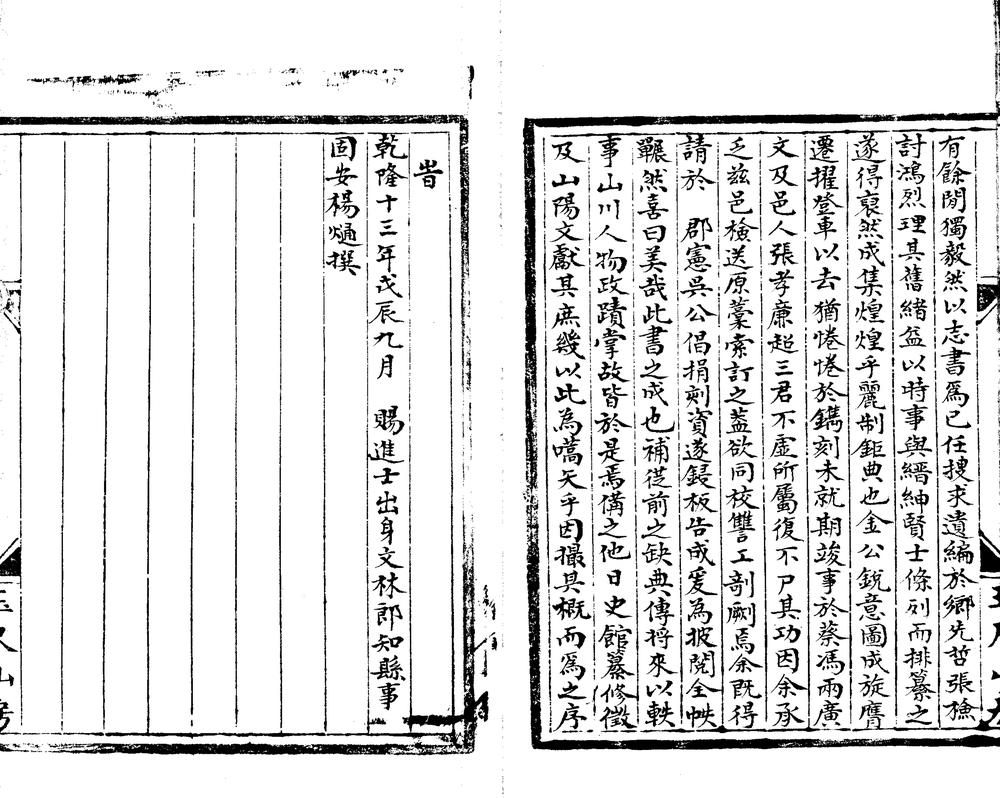 有餘閒獨毅然以志書爲已任搜求遺編於鄉先哲張檢
討鴻烈理其舊緒益以時事與縉紳賢士條列而排纂之
遂得裒然成集煌煌乎麗制鉅典也金公銳意圖成旋膺
遷擢登車以去猶惓惓於鐫刻未就期竣事於蔡馮兩廣
文及邑人張孝廉超三君不虛所屬復不尸其功因余承
乏茲邑檢送原藁索訂之蓋欲同校讐工剞劂焉余既得
請於　郡憲吳公倡捐刻資遂鋟板告成爰為披閱全帙
囅然喜曰美哉此書之成也補從前之缺典傳將來以軼
事山川人物政蹟掌故皆於是焉備之他日史館纂修徵
及山陽文獻其庶幾以此為嚆矢乎因撮具概而爲之序
旹
乾隆十三年戊辰九月　賜進士出身文林郎知縣事
固安楊　撰